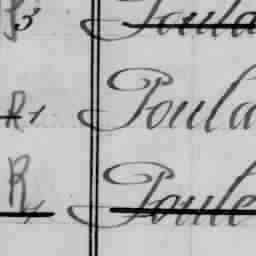 Poula
R1 Poula
R Poule